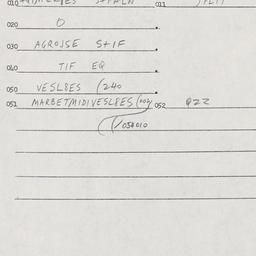 010 011
020 0
030 AGROJSE S+IF
040 TIF EQ
050 VESL8ES (240
051 MARBETMIDIVESL8ES (002 052 022
058010